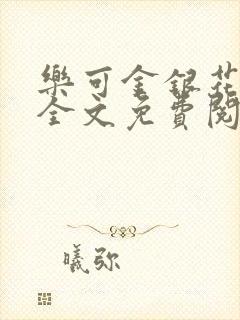 樂可金銀花
全文免費閱
曦弥